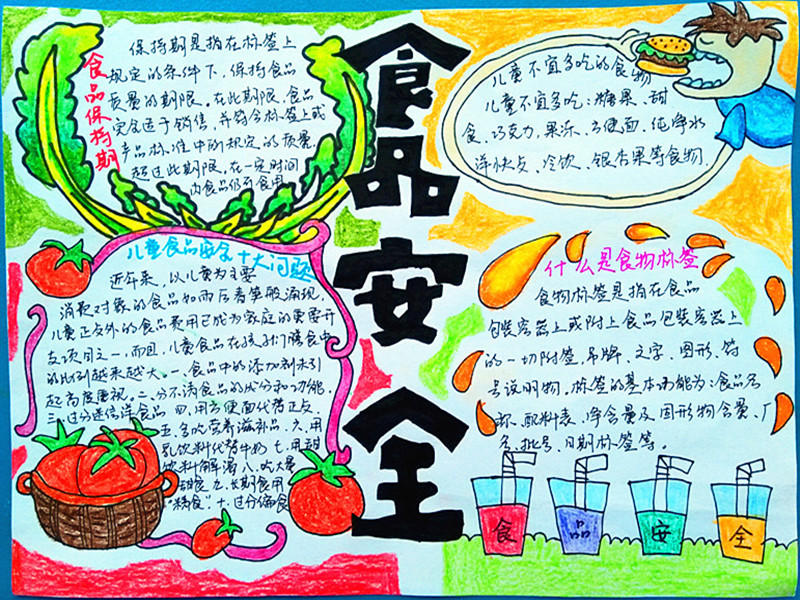 食品安全
食品保持期
保持期是指在标签上
规定的条件下，保持食品
质量的期限。在此期限，食品
完全适于销售，并符合标签上或
产品标准中所规定的质量，
超过此期限，在一定时间
内食品仍可食用
儿童不宜多吃的食物
儿童不宜多吃：糖果、甜
食、巧克力、果冻、方便面、纯净水
洋快点、冷饮、银杏果等食物.
儿童食品安全十大问题
近年来，以儿童为主要
消费对象的食品如雨后春笋般涌现，
儿童正点外的食品费用已成为家庭的重要开
支项目之一，而且，儿童食品在孩子们膳食中
的比例越来越大。一、食品中的添加剂未引
起高度重视。二、分不清食品的成分和功能.
三、过分迷信洋食品 四、用方便面代替正点.
五、多吃营养滋补品. 六、用
乳饮料代替牛奶 七、用甜
饮料解渴 八、吃大量
甜食 九、长期食用
“精食”. 十、过分偏食
什么是食物标签
食物标签是指在食品
包装容器上或附上食品包装容器上
的一切附签、吊牌、文字、图形、符
号说明物。标签的基本功能为：食品名
称、配料表、净含量及固形物含量、厂
名、批号、日期标签等。
食
品
安
全